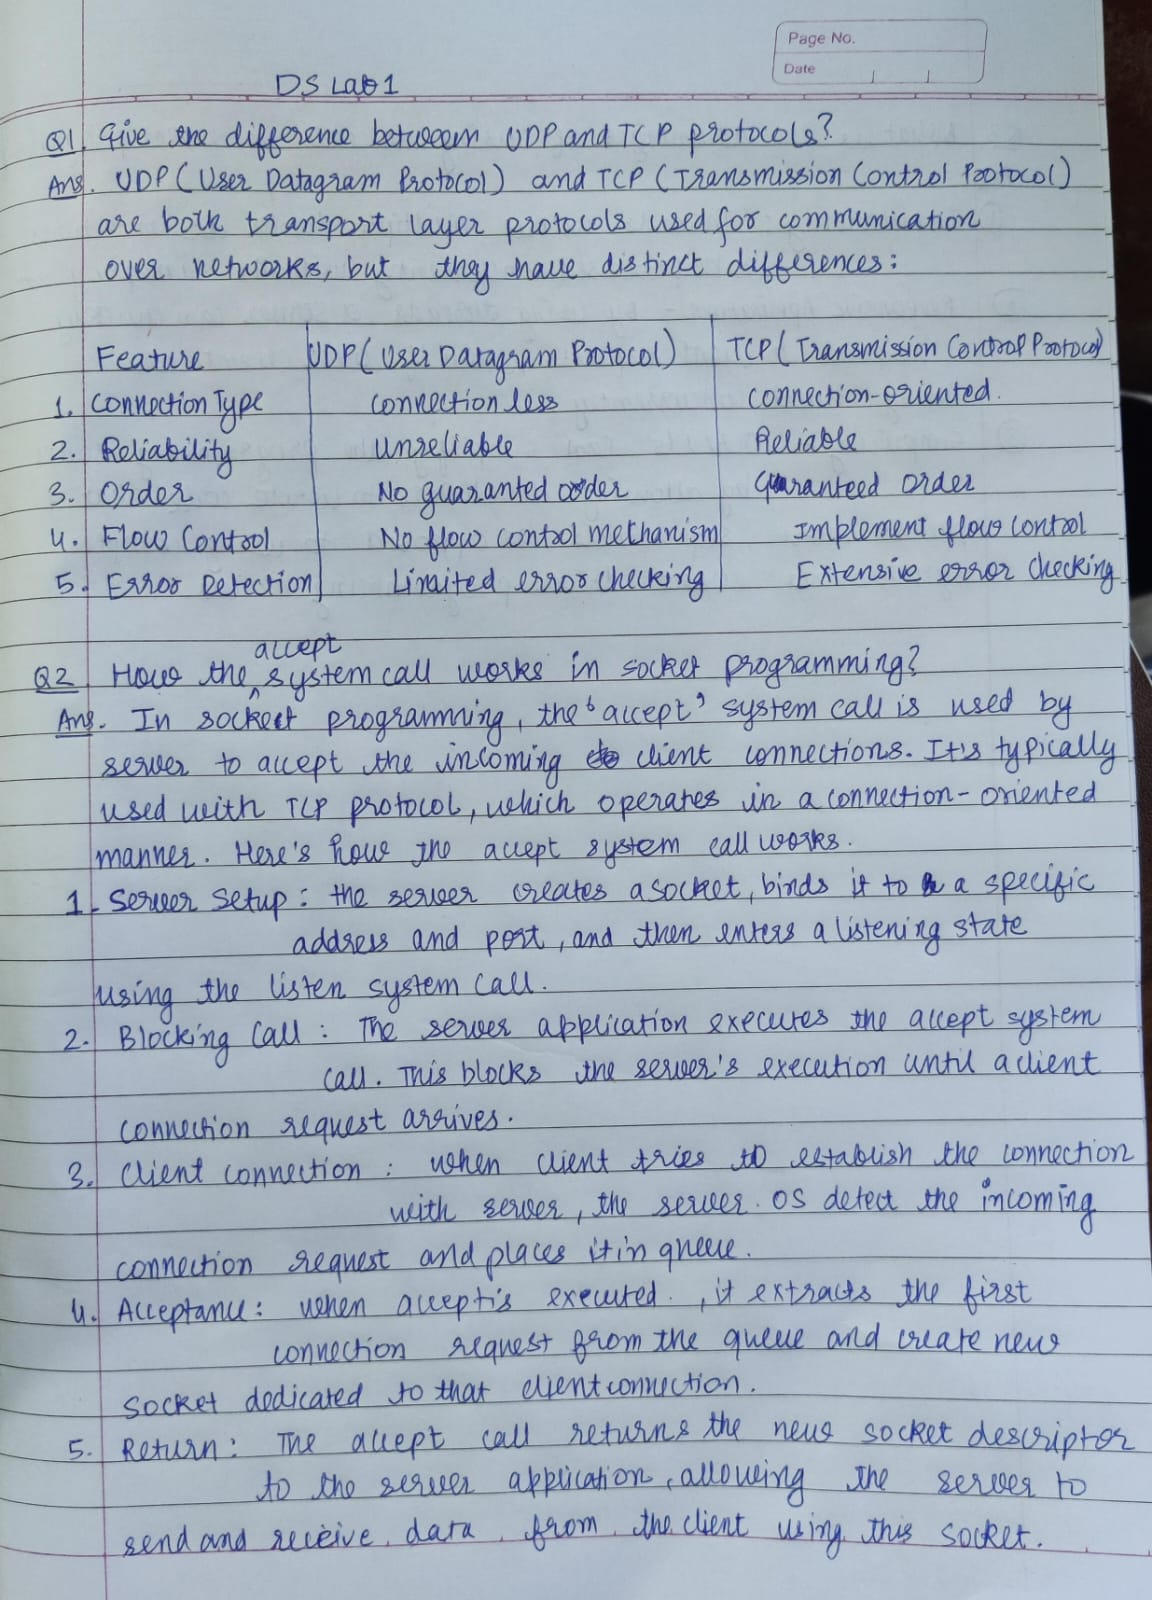 Page No.
Date
DS Lab 1
Q1. Give the difference between UDP and TCP protocols?
Ans. UDP (User Datagram Protocol) and TCP (Transmission Control Protocol)
are both transport layer protocols used for communication
over networks, but they have distinct differences:
Feature UDP (User Datagram Protocol) TCP (Transmission Control Protocol)
1. Connection Type Connection less Connection-oriented.
2. Reliability Unreliable Reliable
3. Order No guaranted order Guaranteed Order
4. Flow Control No flow control mechanism Implement flow control
5. Error Detection Limited error checking Extensive error checking
Q2 How the accept system call works in socket programming?
Ans. In socket programming, the 'accept' system call is used by
server to accept the incoming client connections. It's typically
used with TCP protocol, which operates in a connection-oriented
manner. Here's how the accept system call works.
1. Server Setup : the server creates a socket, binds it to a specific
address and port, and then enters a listening state
using the listen system call.
2. Blocking Call : The server application executes the accept system
call. This blocks the server's execution until a client
connection request arrives.
3. Client connection : when client tries to establish the connection
with server, the server OS detect the incoming
connection request and places it in queue.
4. Acceptance : when accept is executed, it extracts the first
connection request from the queue and create new
socket dedicated to that client connection.
5. Return : The accept call returns the new socket descriptor
to the server application, allowing the server to
send and receive data from the client using this socket.